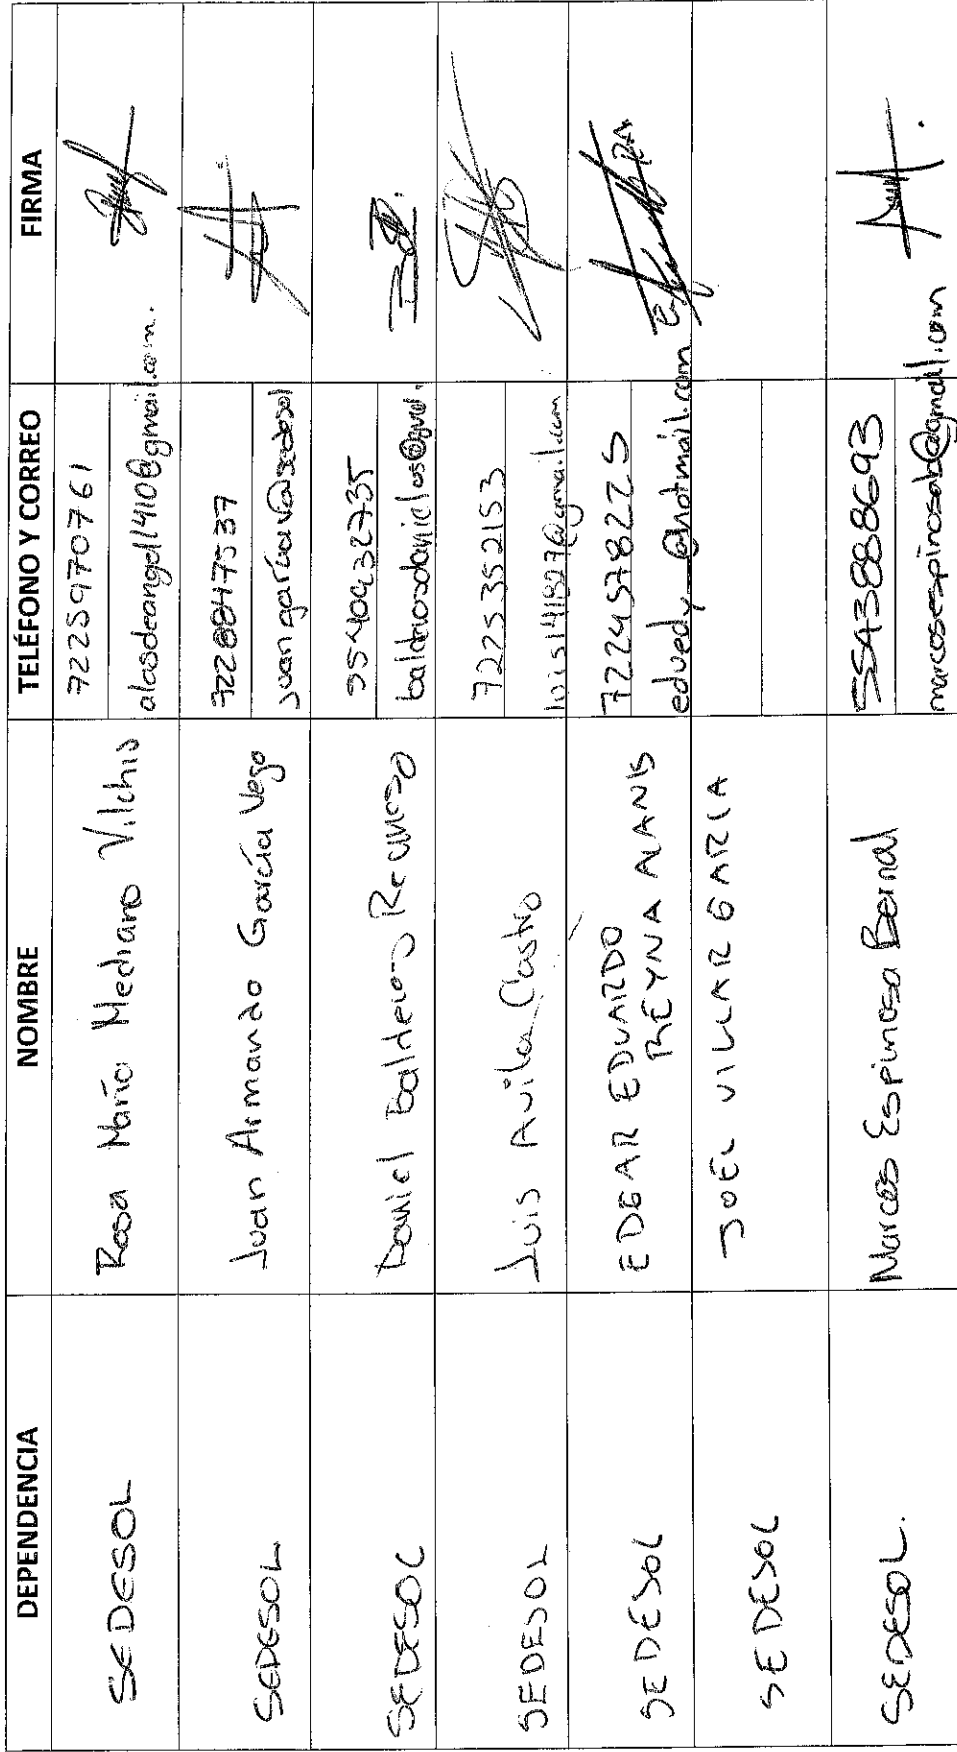 DEPENDENCIA NOMBRE TELÉFONO Y CORREO FIRMA
SEDESOL Rosa María Medrano Vilchis 7225970761
alasdeangel1410@gmail.com.
SEDESOL Juan Armando García Vega 7228847537
juangarciava@sedesol
SEDESOL Daniel Balderas 5540932735
SEDESOL Luis Avila Castro 7225352153
luis141827@gmail.com
SEDESOL EDGAR EDUARDO 7224578225
REYNA ALANIS
eduedy_@hotmail.com
SEDESOL JOEL VILLAR GARCIA
SEDESOL. Marcos Espinosa Bernal 5543888693
marcosespinosab@gmail.com